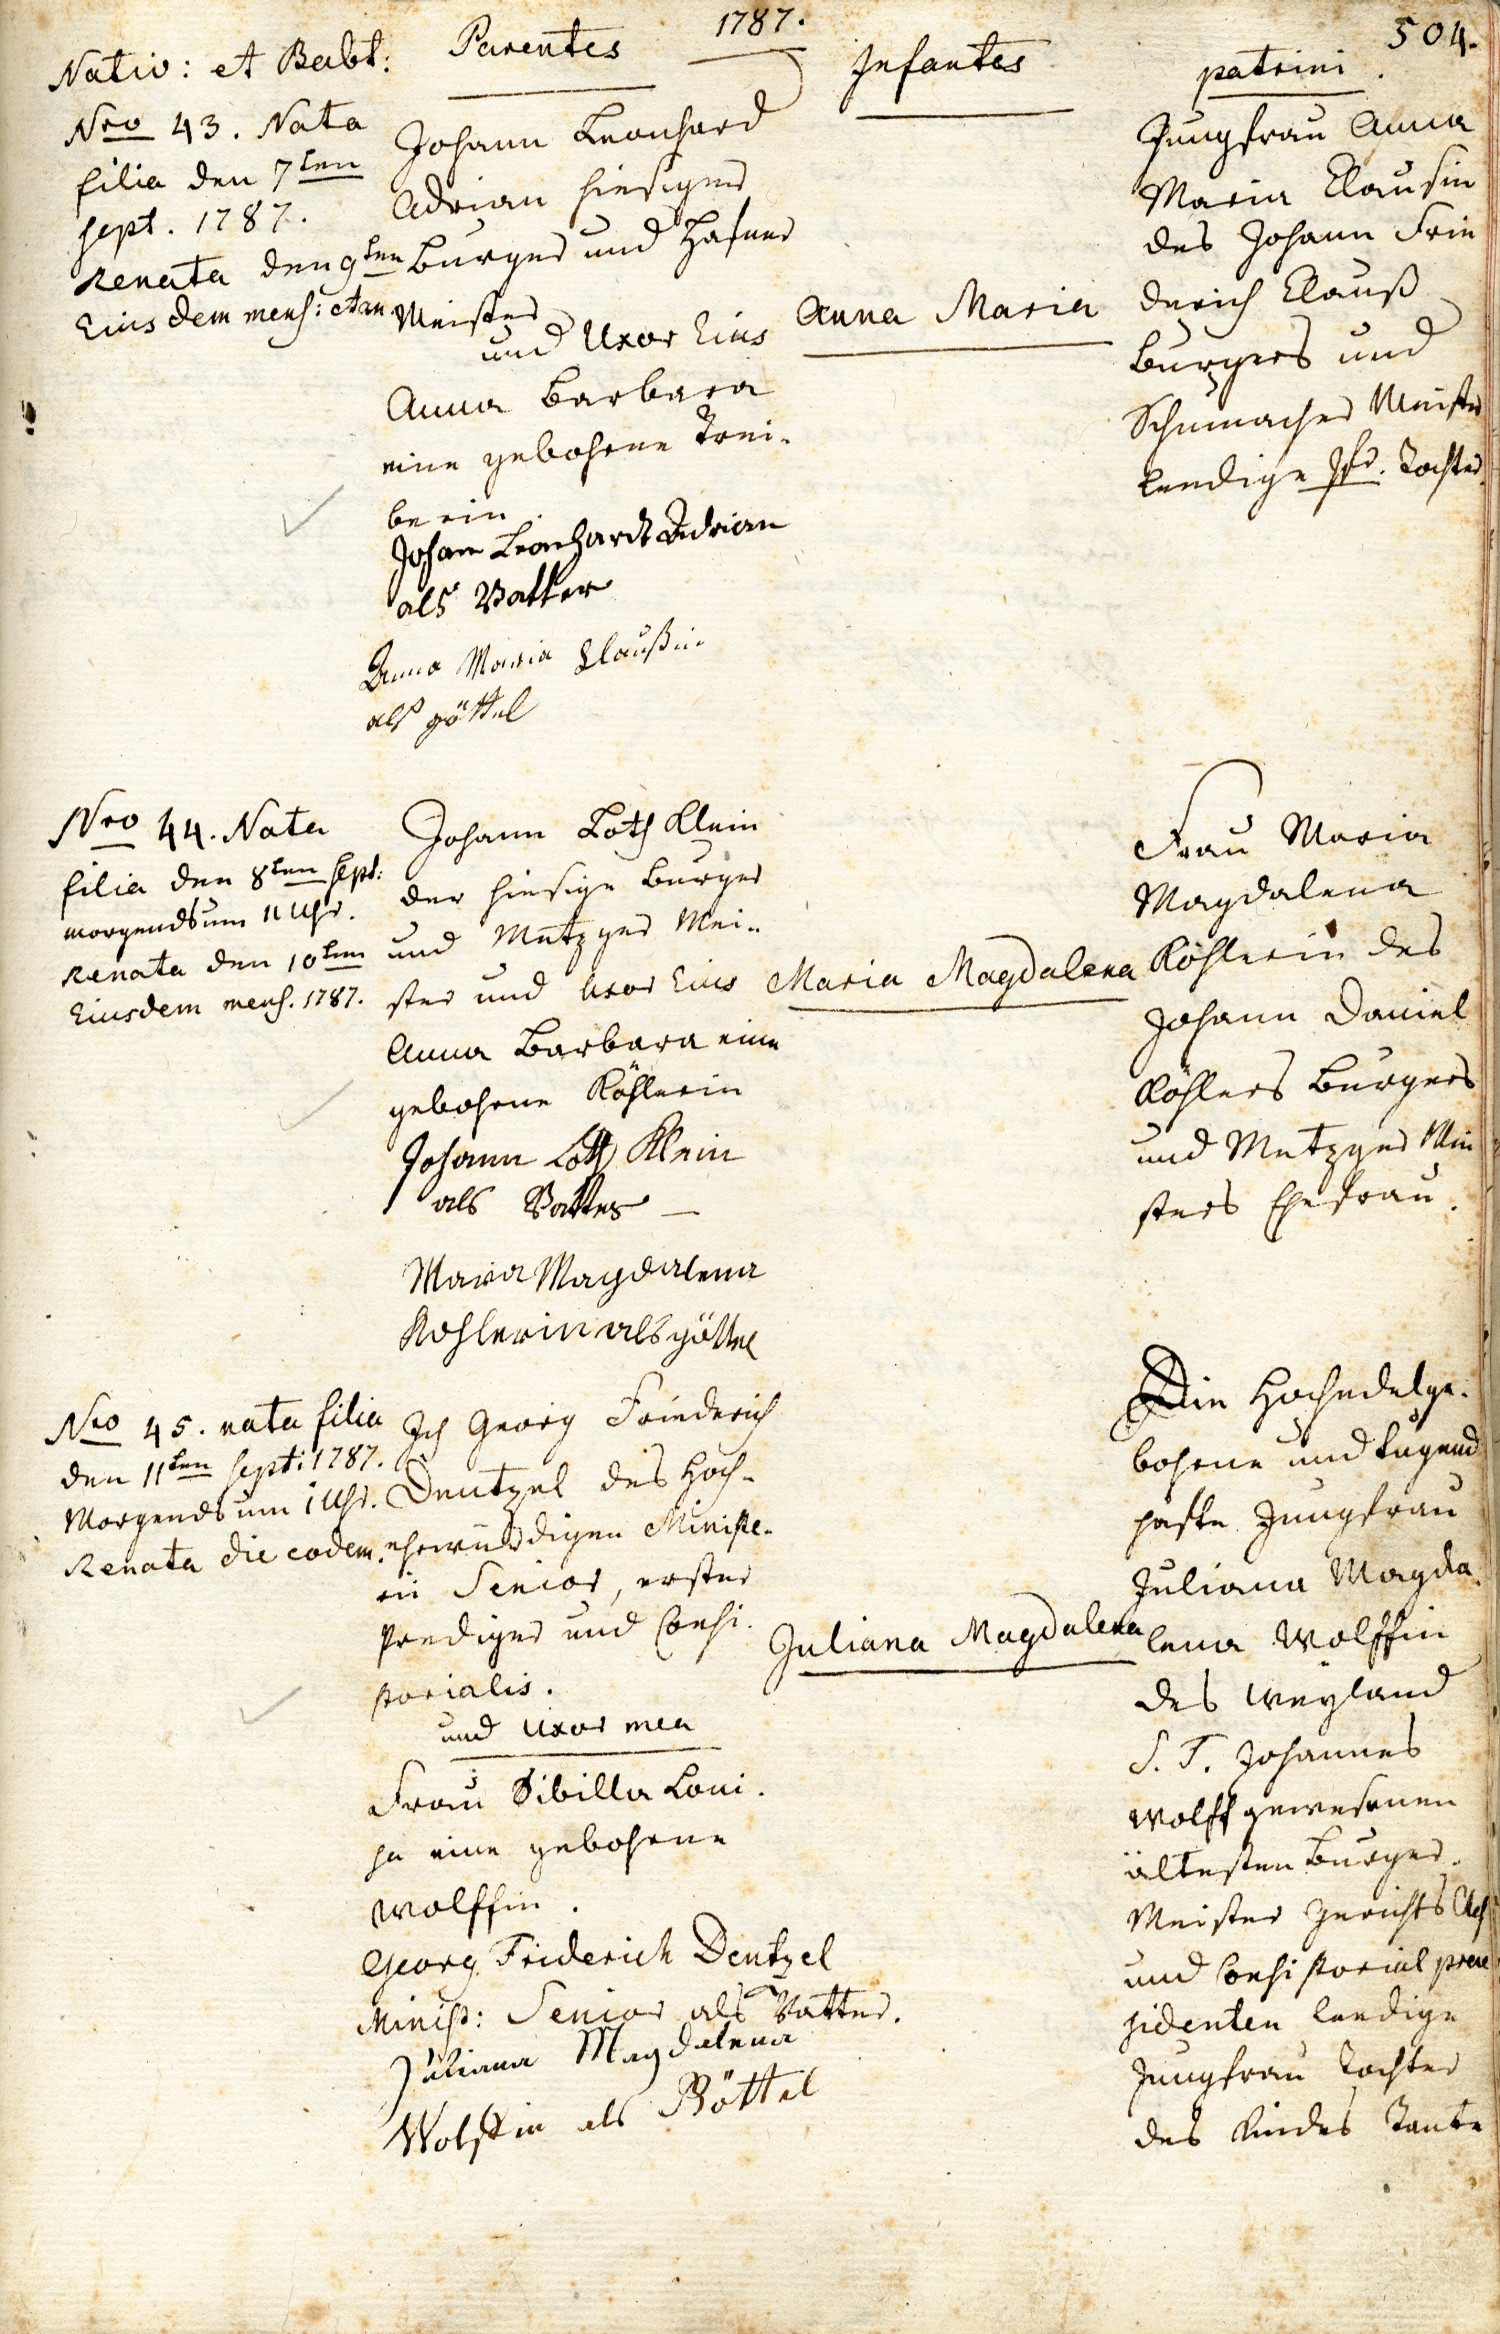 1787.
504.
Nativ: et Babt:
Parentes
Infantes
patrini.
Nro 43. Nata
filia den 7ten
sept. 1787.
Renata den 9ten
Eius dem mens: et an
Johann Leonhard
Adrian hiesiger
Burger und Hafner
Meister
und Uxor Eius
Anna Barbara
eine gebohrne Trei-
berin.
Johann Leonhardt Adrian
als Vatter
Anna Maria Claußin
als göttel
Anna Maria
Jungfrau Anna
Maria Clausin
des Johann Frie
derich Clauß
Burgers und
Schumacher Meister
leedige Tochter
Nro 44. Nata
filia den 8ten sept:
morgends um 11 Uhr.
Renata den 10ten
Eiusdem mens. 1787.
Johann Loth Klein
der hiesige Burger
und Metzger Mei-
ster und Uxor Eius
Anna Barbara eine
gebohrne Köhlerin
Johann Loth Klein
als Vatter
Maria Magdalena
Kohlerin als göttel
Maria Magdalena
Frau Maria
Magdalena
Köhlerin des
Johann Daniel
Köhlers Burgers
und Metzger Mei
sters Ehefrau.
Nro 45. nata filia
den 11ten sept: 1787.
Morgends um 1 Uhr.
Renata die eodem.
Ich Georg Friederich
Dentzel des Hoch-
ehrwürdigen Ministe-
rii Senior, erster
Prediger und Consi-
storialis.
und Uxor mea
Frau Sibilla Loui-
sa eine gebohrne
Wolffin.
Georg Friderich Dentzel
Minist: Senior als Vatter.
Juliana Magdalena
Wolffin als Göttel
Juliana Magdalena
Die Hochedelge-
bohrne und tugend
hafte Jungfrau
Juliana Magda
lena Wolffin
des weyland
S. T. Johannes
Wolff gewesenen
ältesten Burger-
Meister Gerichts
und Consistorial prae
sidenten leedige
Jungfrau Tochter
des Kindes Tante